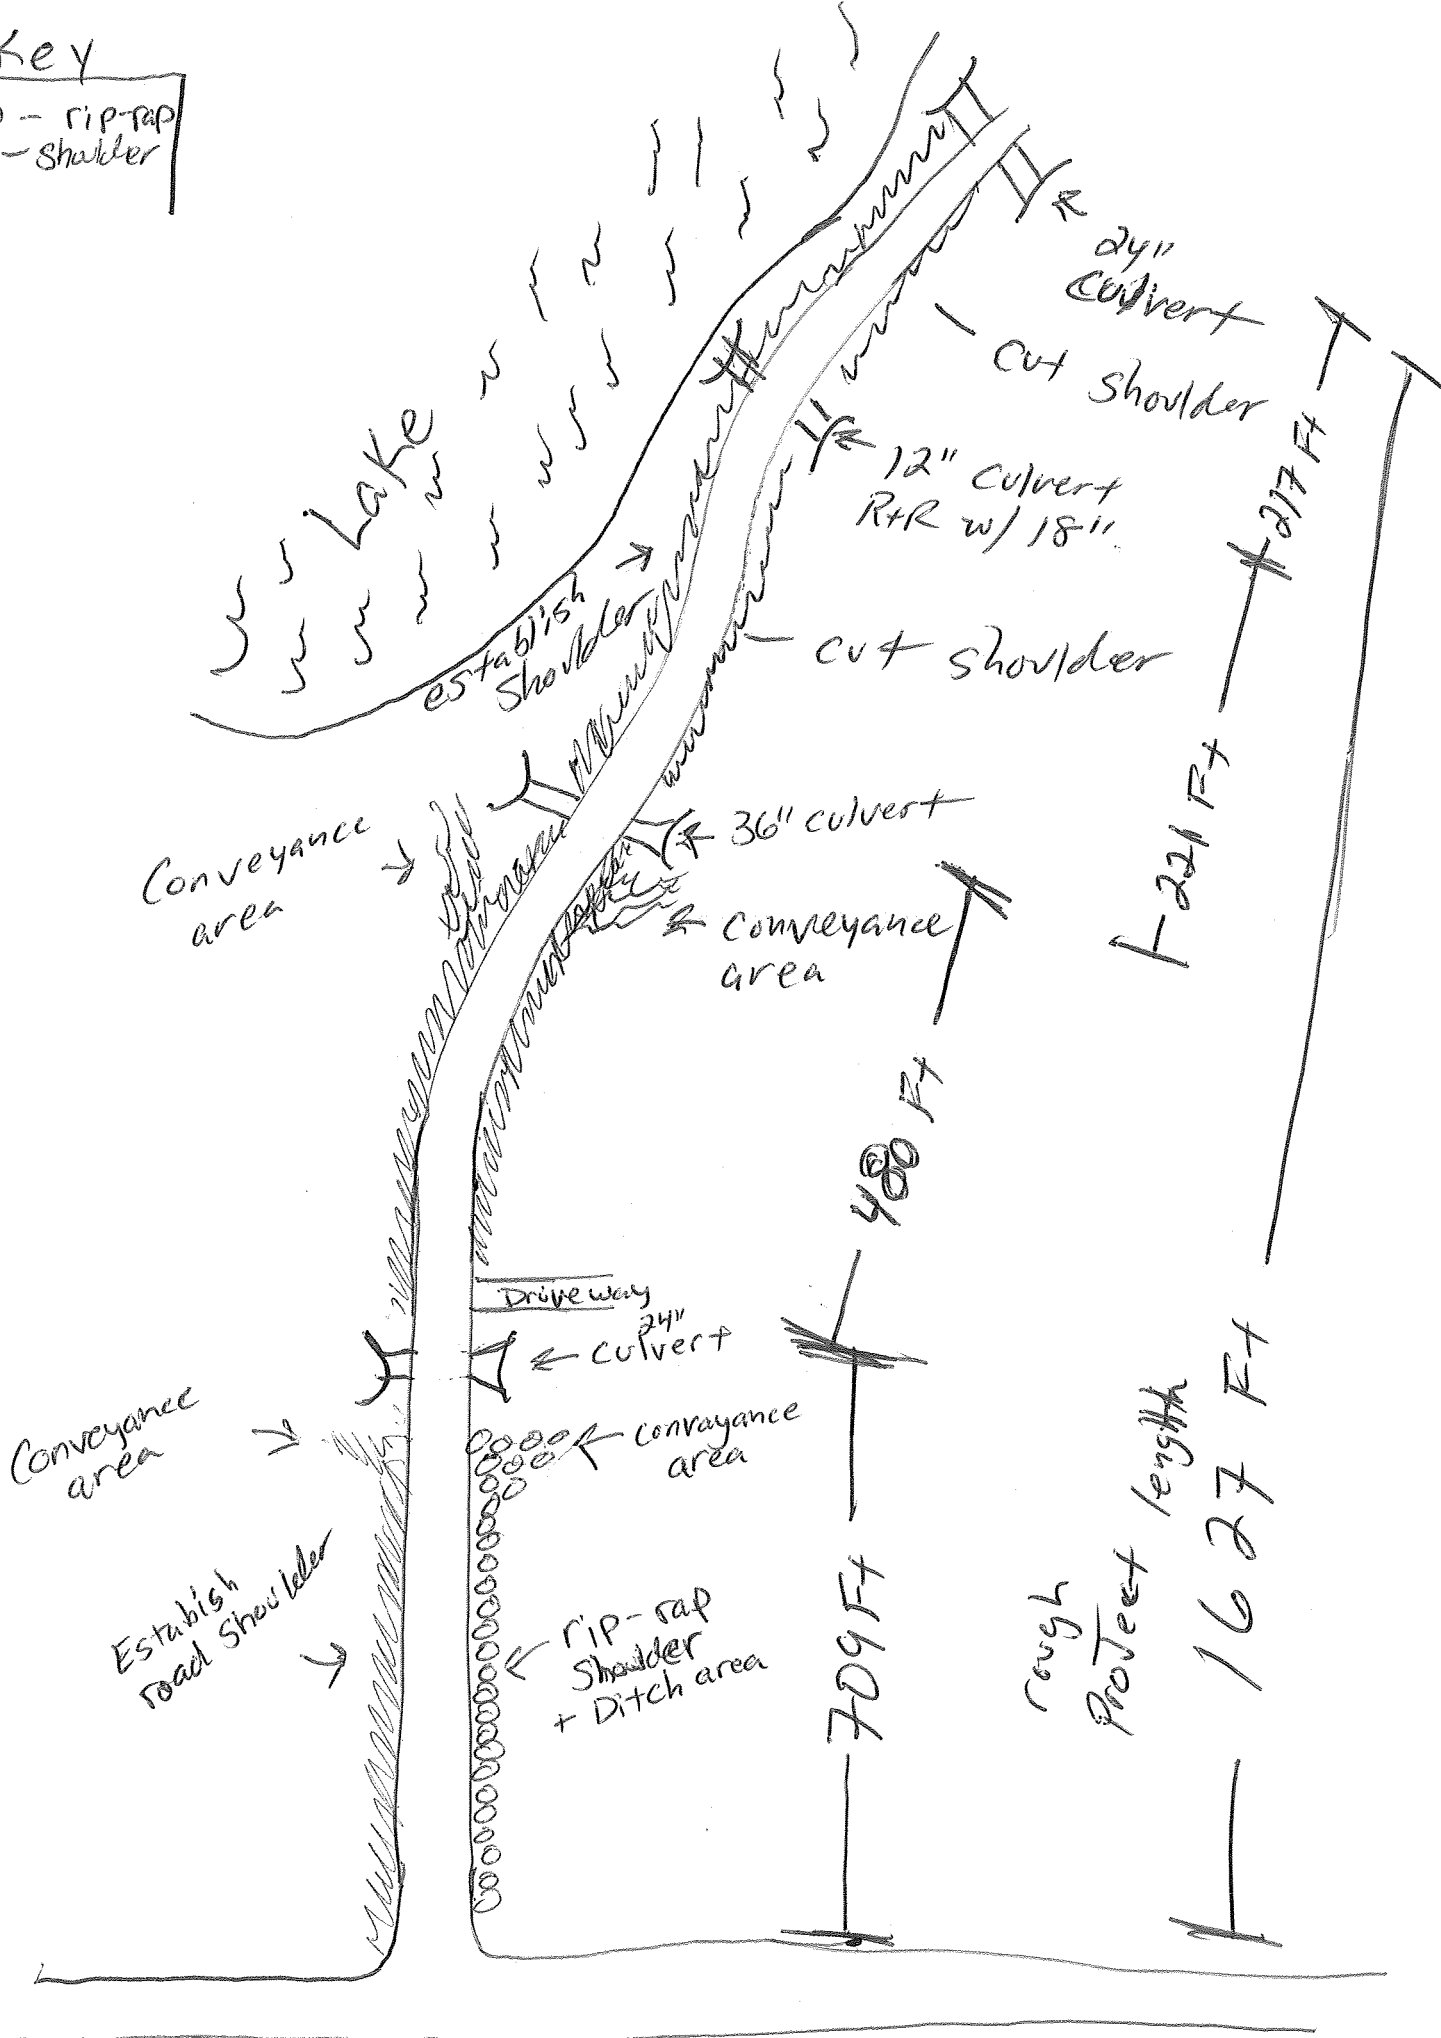 Key
- rip-rap
- Shoulder
24"
Culvert
cut shoulder
217 Ft
12" Culvert
R+R w/ 18"
Lake
establish
shoulder
cut shoulder
221 Ft
36" culvert
Conveyance
area
Conveyance
area
480 Ft
Driveway
24"
Culvert
Conveyance
area
Convayance
area
Estabish
road Shoulder
rip-rap
Shoulder
+ Ditch area
709 Ft
rough
Project lenghth
1627 Ft